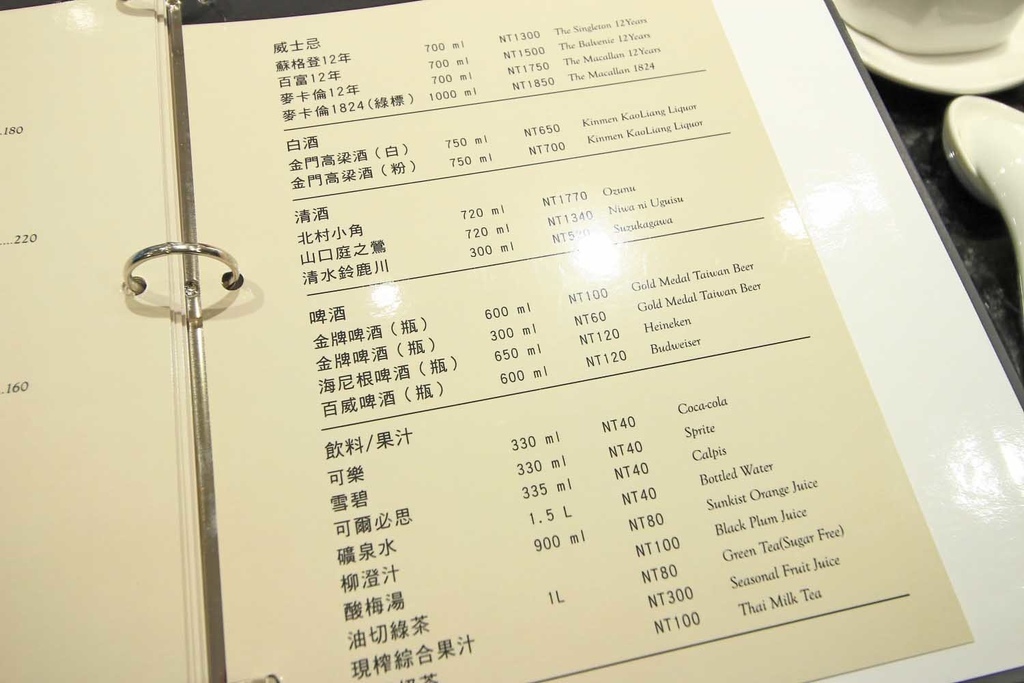 .180
....220
..160
威士忌
蘇格登12年 700 ml NT1300 The Singleton 12Years
百富12年 700 ml NT1500 The Balvenie 12Years
麥卡倫12年 700 ml NT1750 The Macallan 12Years
麥卡倫1824(綠標) 1000 ml NT1850 The Macallan 1824
白酒
金門高梁酒（白） 750 ml NT650 Kinmen KaoLiang Liquor
金門高梁酒（粉） 750 ml NT700 Kinmen KaoLiang Liquor
清酒
北村小角 720 ml NT1770 Ozunu
山口庭之鶯 720 ml NT1340 Niwa ni Uguisu
清水鈴鹿川 300 ml Suzukagawa
啤酒
金牌啤酒（瓶） 600 ml NT100 Gold Medal Taiwan Beer
金牌啤酒（瓶） 300 ml NT60 Gold Medal Taiwan Beer
海尼根啤酒（瓶） 650 ml NT120 Heineken
百威啤酒（瓶） 600 ml NT120 Budweiser
飲料/果汁
可樂 330 ml NT40 Coca-cola
雪碧 330 ml NT40 Sprite
可爾必思 335 ml NT40 Calpis
礦泉水 1.5 L NT40 Bottled Water
柳澄汁 900 ml NT80 Sunkist Orange Juice
酸梅湯 NT100 Black Plum Juice
油切綠茶 1L NT80 Green Tea(Sugar Free)
現榨綜合果汁 NT300 Seasonal Fruit Juice
奶茶 NT100 Thai Milk Tea